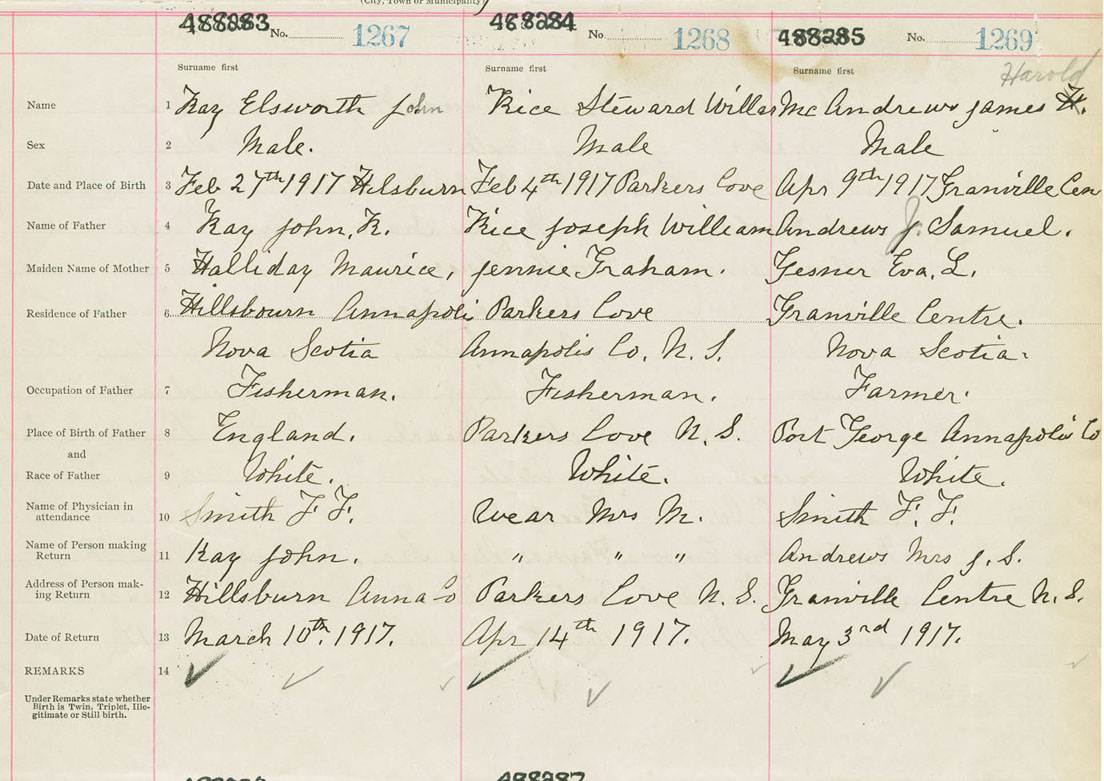 (City, Town or Municipality)
488283 No. 1267 488284 No. 1268 488285 No. 1269
Surname first Surname first Surname first Harold
Name 1 Kay Elsworth John Rice Steward Willar McAndrews James H.
Sex 2 Male. Male Male
Date and Place of Birth 3 Feb 27th 1917 Hilsburn Feb 4th 1917 Parkers Cove Apr 9th 1917 Granville Cen
Name of Father 4 Kay John, R. Rice Joseph William Andrews J. Samuel.
Maiden Name of Mother 5 Halliday Maurice, Jennie Graham. Gesner Eva, L.
Residence of Father 6 Hillsbourn Annapolis Parkers Cove Granville Centre.
Nova Scotia Annapolis Co. N. S. Nova Scotia.
Occupation of Father 7 Fisherman. Fisherman. Farmer.
Place of Birth of Father 8 England. Parkers Cove N. S. Port George Annapolis Co
and
Race of Father 9 White. White. White.
Name of Physician in attendance 10 Smith F F. Wear Mrs M. Smith F. F.
Name of Person making Return 11 Kay John. " " " Andrews Mrs J. S.
Address of Person mak-ing Return 12 Hillsburn Anna Co Parkers Cove N. S. Granville Centre N. S.
Date of Return 13 March 10th. 1917. Apr 14th 1917. May 3rd 1917.
REMARKS 14
Under Remarks state whether
Birth is Twin, Triplet, Ille-
gitimate or Still birth.
488287